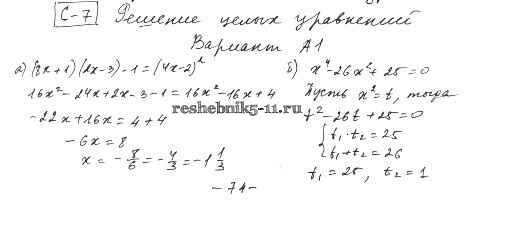 С-7 Решение целых уравнений
Вариант А1
а) (8x+1)(2x-3)-1=(4x-2)²
16x²-24x+2x-3-1=16x²-16x+4
-22x+16x=4+4
-6x=8
x=-8/6=-4/3=-1 1/3
б) x⁴-26x²+25=0
Пусть x²=t, тогда
t²-26t+25=0
{t₁·t₂=25
{t₁+t₂=26
t₁=25, t₂=1
reshebnik5-11.ru
-74-